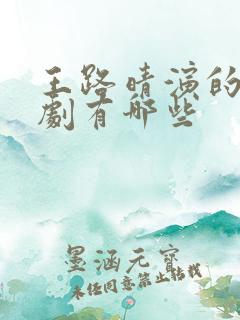 王路晴演的
劇有哪些
墨涵元寶
未经同意禁止搬栽